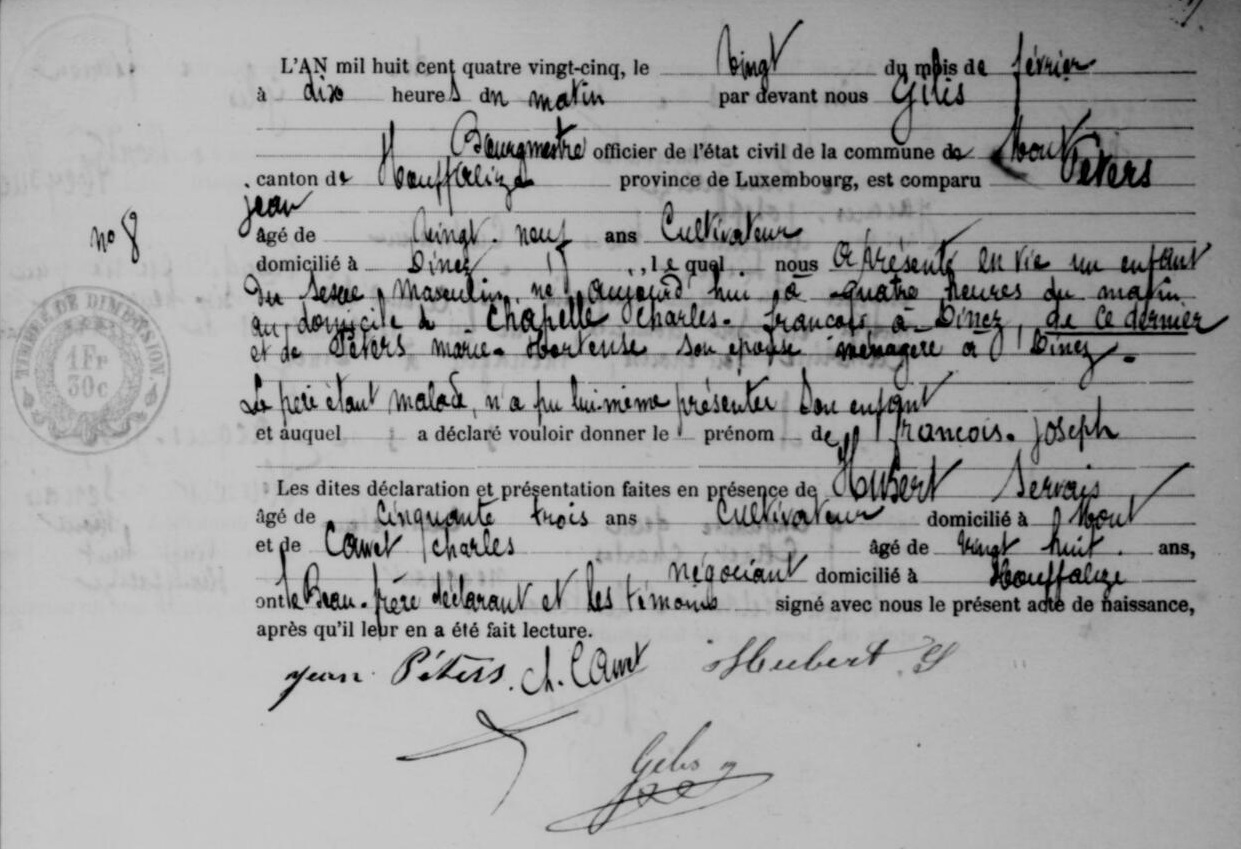 L'AN mil huit cent quatre vingt-cinq, le vingt du mois de février
à dix heures du matin par devant nous Gilis
Bourgmestre officier de l'état civil de la commune de Mont
canton de Houffalize province de Luxembourg, est comparu Péters
jean
n° 8
âgé de vingt-neuf ans Cultivateur
domicilié à Dinez, lequel nous a présenté en vie un enfant
du sexe masculin, né aujourd'hui à quatre heures du matin
au domicile de Chapelle Charles-François à Dinez, de ce dernier
et de Péters marie-Hortense son épouse ménagère à Dinez.
Le père étant malade, n'a pu lui-même présenter son enfant
et auquel a déclaré vouloir donner le prénom de françois-joseph
Les dites déclaration et présentation faites en présence de Hubert Servais
âgé de cinquante trois ans cultivateur domicilié à Mont
et de Cawet charles âgé de vingt huit ans,
négociant domicilié à Houffalize
ont le Beau-frère déclarant et les témoins signé avec nous le présent acte de naissance,
après qu'il leur en a été fait lecture.
jean Péters. Ch. Cawet Hubert S
Gilis
TIMBRE DE DIMENSION
1 Fr
30c